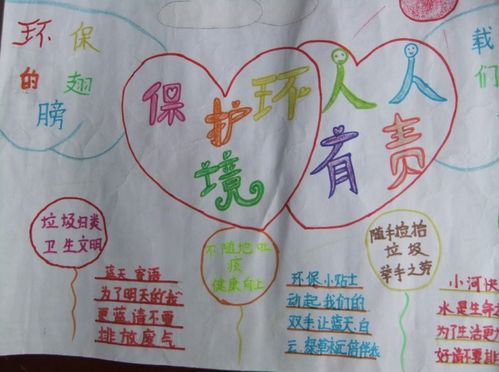 环保
的翅
膀
保护环
境
人人
有责
载
们
垃圾归类
卫生文明
不随地吐
痰
健康向上
随手捡拾
垃圾
举手之劳
蓝天寄语
为了明天的我
更蓝请不要
排放废气
环保小贴士
动起我们的
双手让蓝天.白
云.绿草永远陪伴我
小河快
水是生命
为了生活更
好请不要排